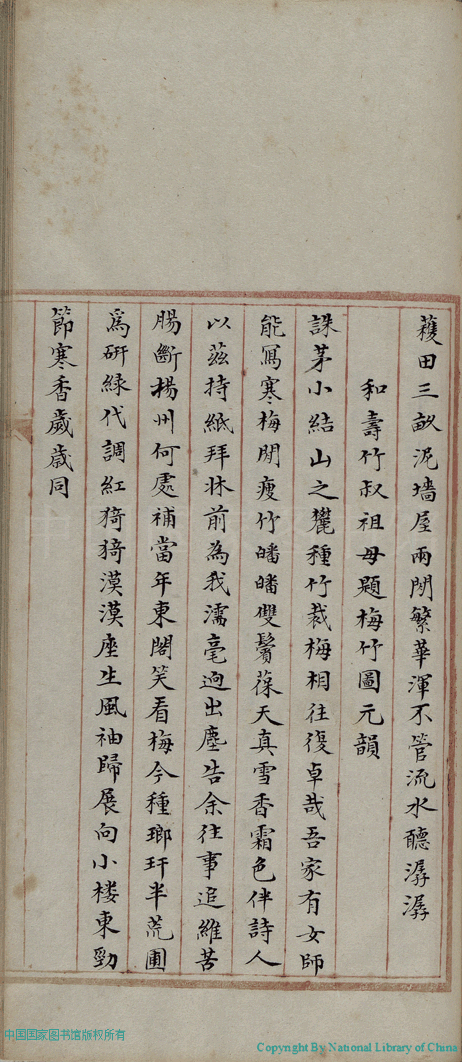 穫田三畝泥墻屋兩閒繁華渾不管流水聽潺潺
和壽竹叔祖母題梅竹圖元韻
誅茅小結山之麓種竹栽梅相往復卓哉吾家有女師
能寫寒梅閒瘦竹皤皤雙鬢葆天真雪香霜色伴詩人
以茲持紙拜牀前為我濡毫逈出塵告余往事追維苦
腸斷揚州何處補當年東閣笑看梅今種瑯玕半荒圃
爲研緑代調紅猗猗漠漠座生風袖歸展向小楼東勁
節寒香歲歲同
中国国家图书馆版权所有
Copyright By National Library of China